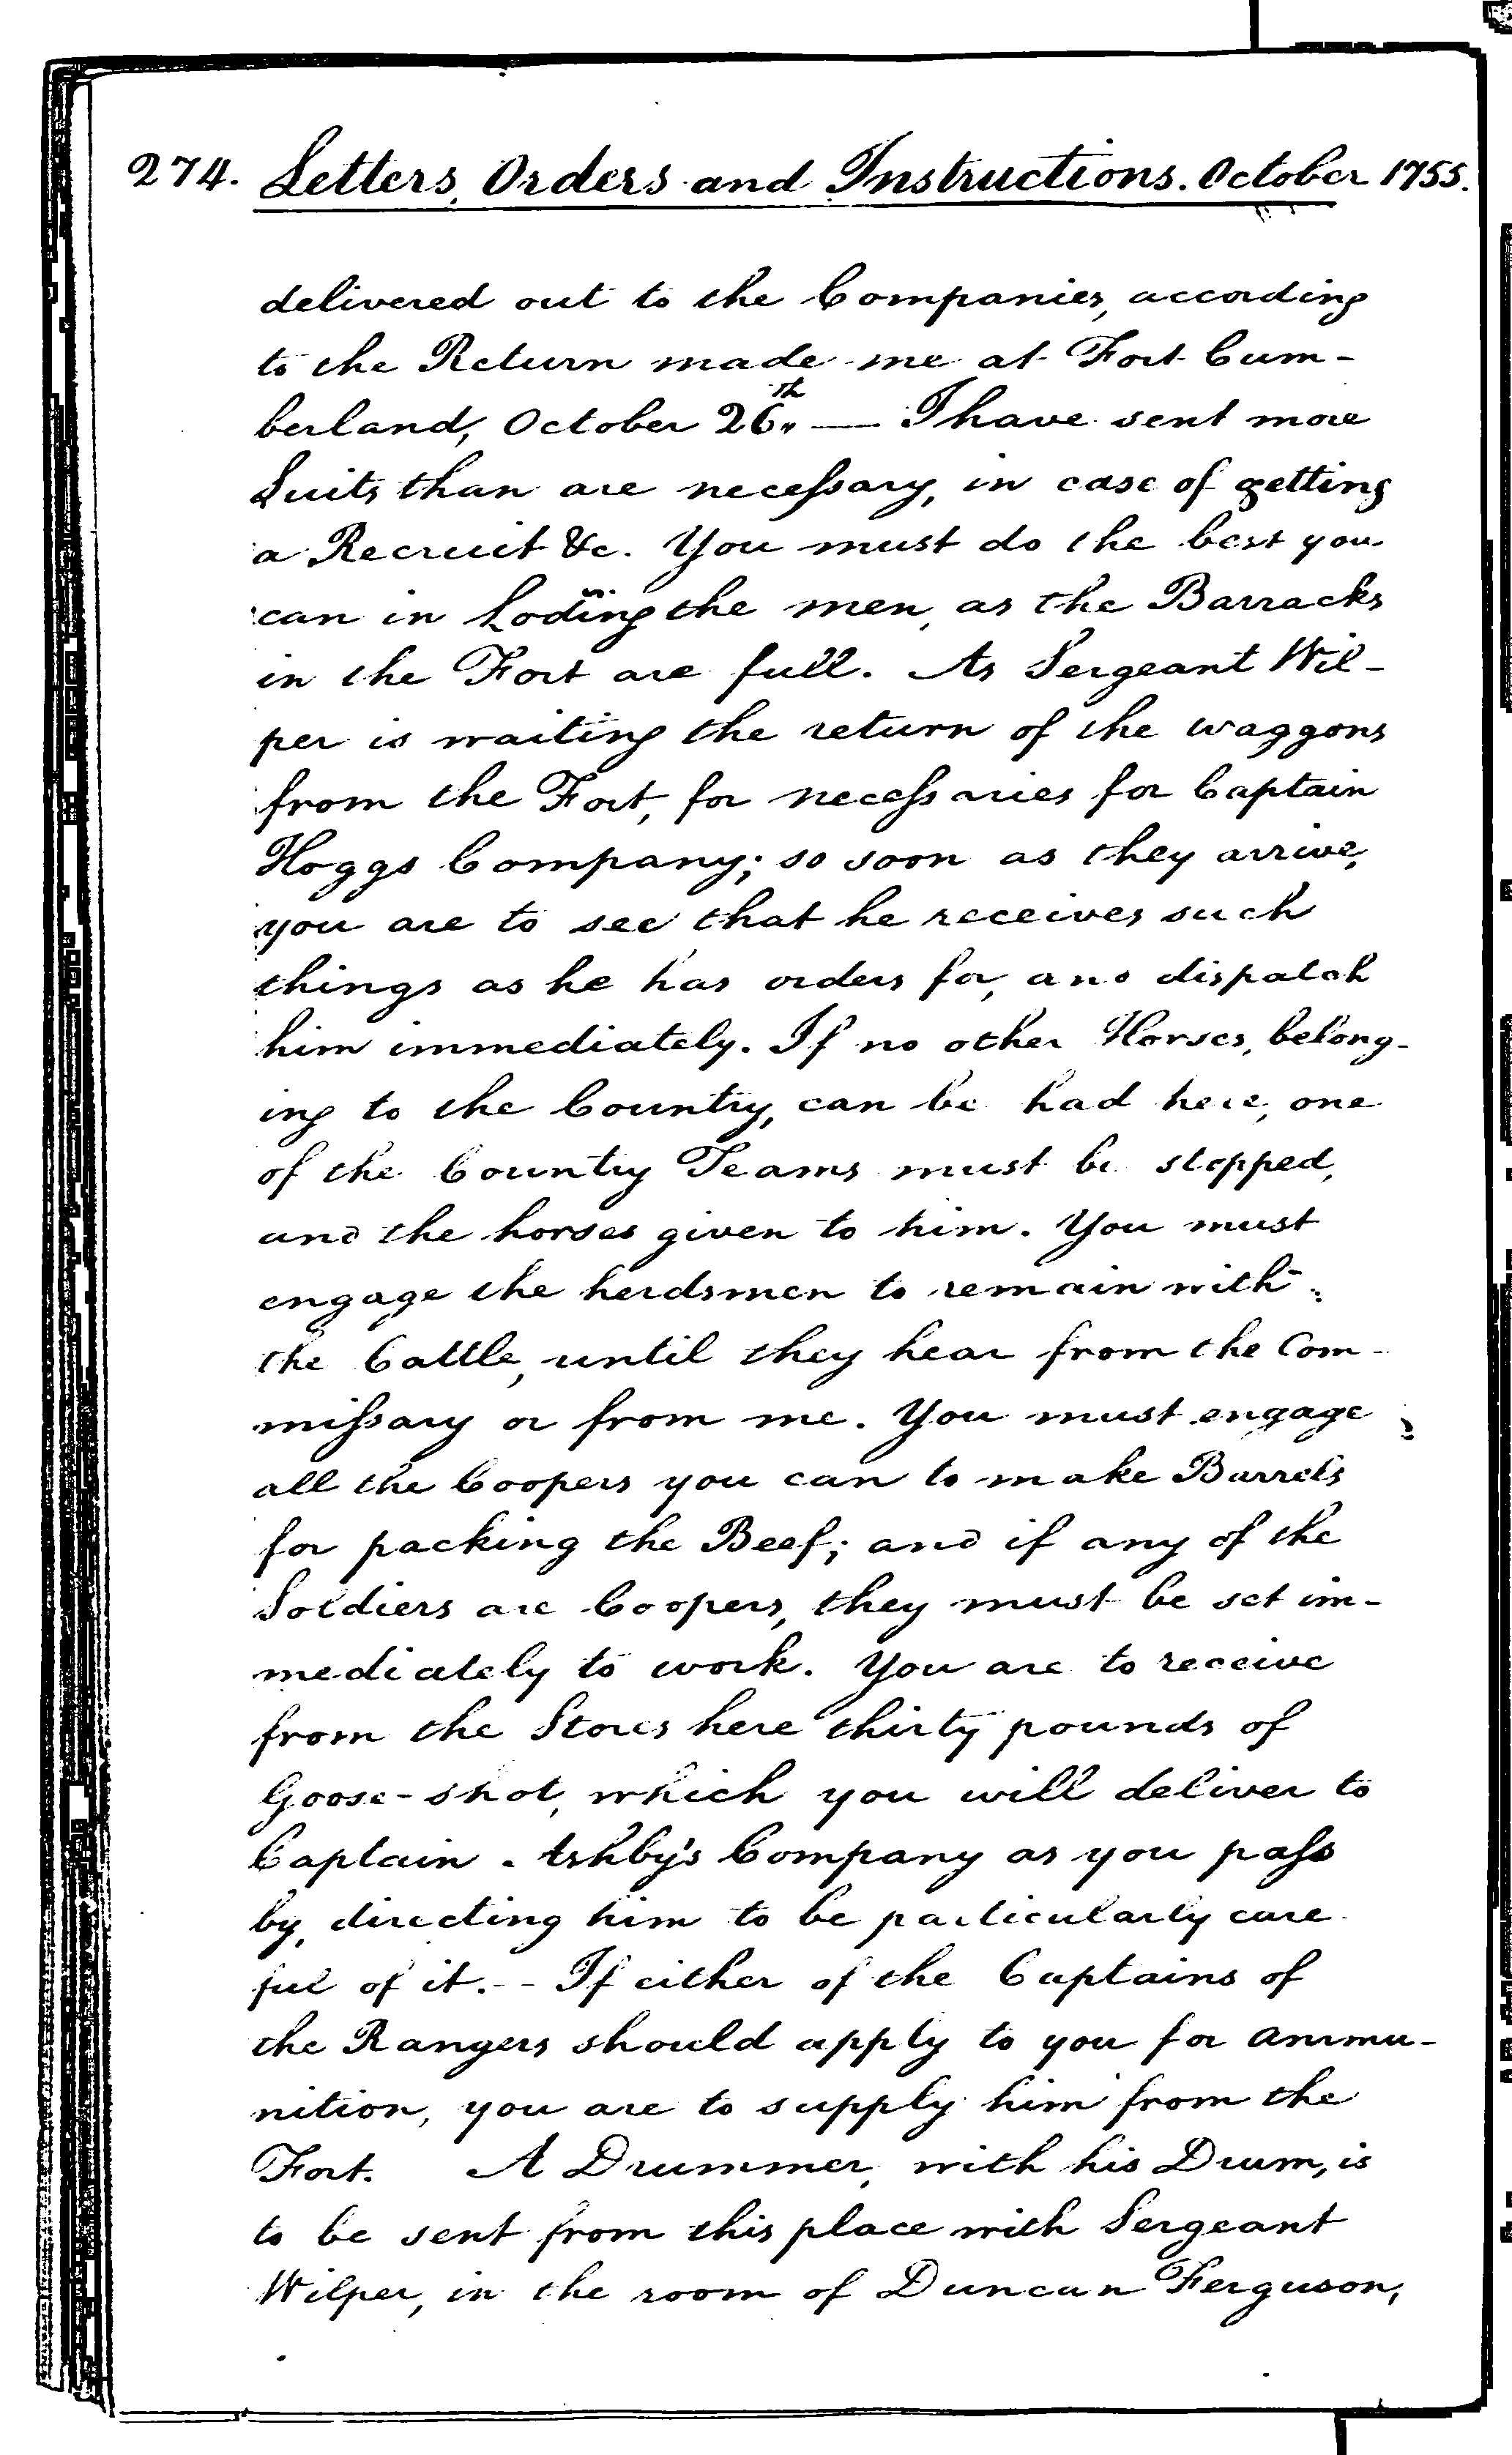 274. Letters, Orders and Instructions. October 1755.
delivered out to the Companies, according
to the Return made me at Fort Cum-
berland, October 26th. — I have sent more
Suits than are necessary, in case of getting
a Recruit &c. You must do the best you
can in Loding the men, as the Barracks
in the Fort are full. As Sergeant Wil-
per is waiting the return of the waggons
from the Fort, for necessaries for Captain
Hoggs Company; so soon as they arrive,
you are to see that he receives such
things as he has orders for, and dispatch
him immediately. If no other Horses, belong-
ing to the Country, can be had here, one
of the Country Teams must be stopped,
and the horses given to him. You must
engage the herdsmen to remain with
the Cattle, until they hear from the Com-
missary or from me. You must engage
all the Coopers you can to make Barrels
for packing the Beef; and if any of the
Soldiers are Coopers, they must be set im-
mediately to work. You are to receive
from the Stores here thirty pounds of
Goose-shot, which you will deliver to
Captain Ashby's Company as you pass
by, directing him to be particularly care-
ful of it. -- If either of the Captains of
the Rangers should apply to you for ammu-
nition, you are to supply him from the
Fort. A Drummer, with his Drum, is
to be sent from this place with Sergeant
Wilper, in the room of Duncan Ferguson,